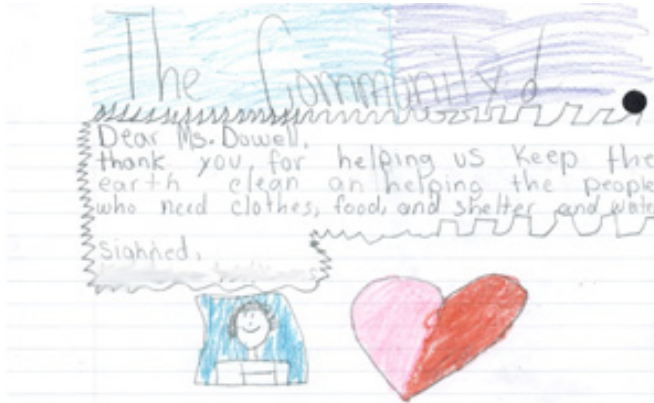 The Community!
Dear Ms. Dowell,
thank you, for helping us keep the
earth clean an helping the people
who need clothes, food, and shelter and wate
Sighned,